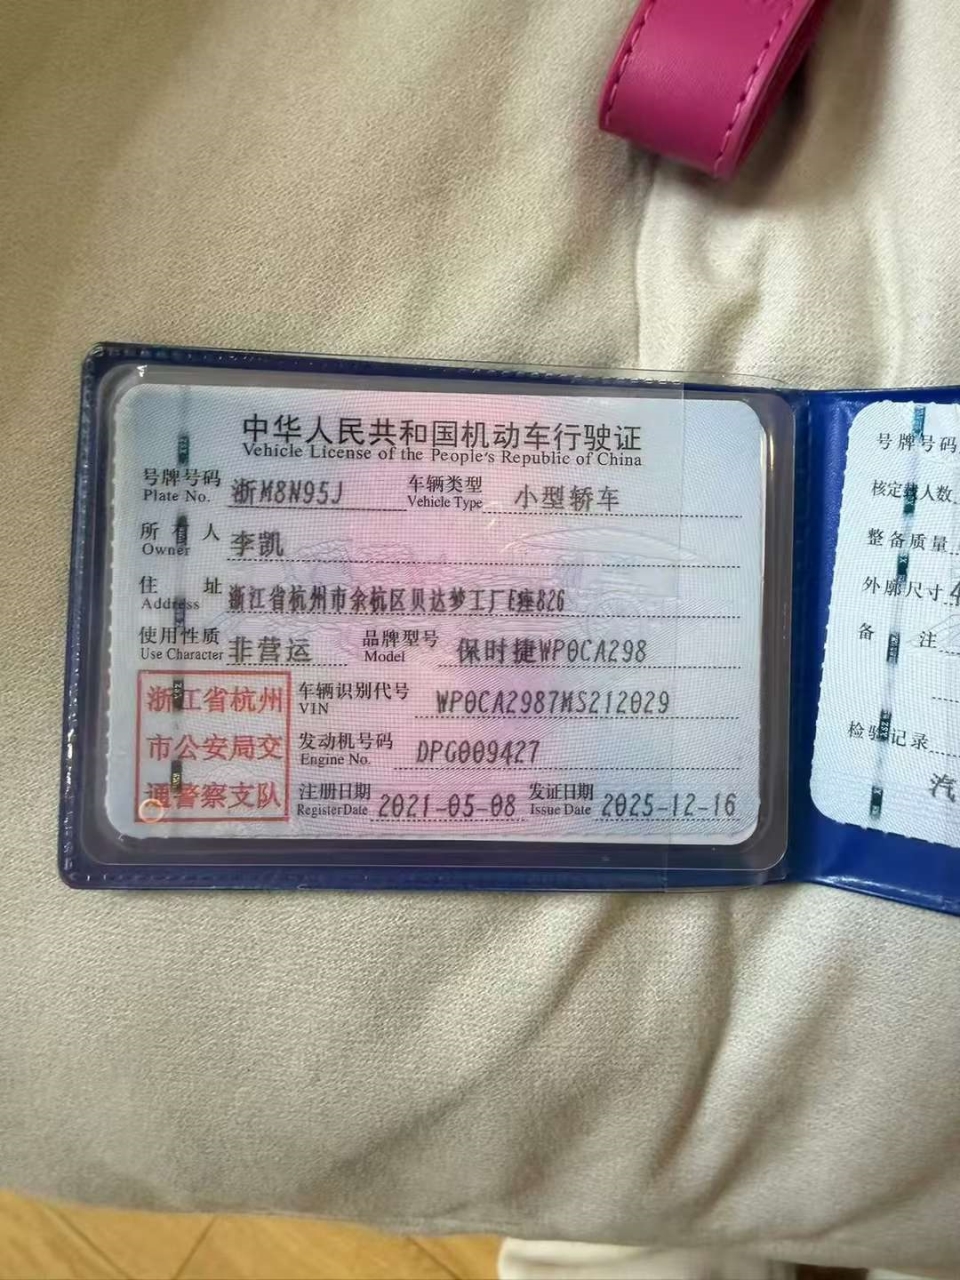 中华人民共和国机动车行驶证
Vehicle License of the People's Republic of China
号牌号码 浙M8N95J 车辆类型 小型轿车
Plate No. Vehicle Type
所有人 李凯
Owner
住址 浙江省杭州市余杭区贝达梦工厂E座826
Address
使用性质 非营运 品牌型号 保时捷WP0CA298
Use Character Model
浙江省杭州
市公安局交
通警察支队
车辆识别代号 WP0CA2987MS212029
VIN
发动机号码 DPG009427
Engine No.
注册日期 2021-05-08 发证日期 2025-12-16
Register Date Issue Date
号牌号码
核定载人数
整备质量
外廓尺寸 4
备注
检验记录
汽